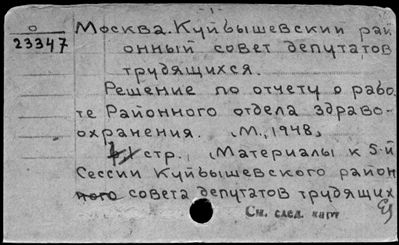 О
23347
Москва. Куйбышевский рай
онный совет депутатов
трудящихся.
Решение по отчету о рабо
те Районного отдела здраво-
охранения. М., 1948.
стр. (Материалы к 5-й
Сессии Куйбышевского район
ного совета депутатов трудящих
См. след. карт